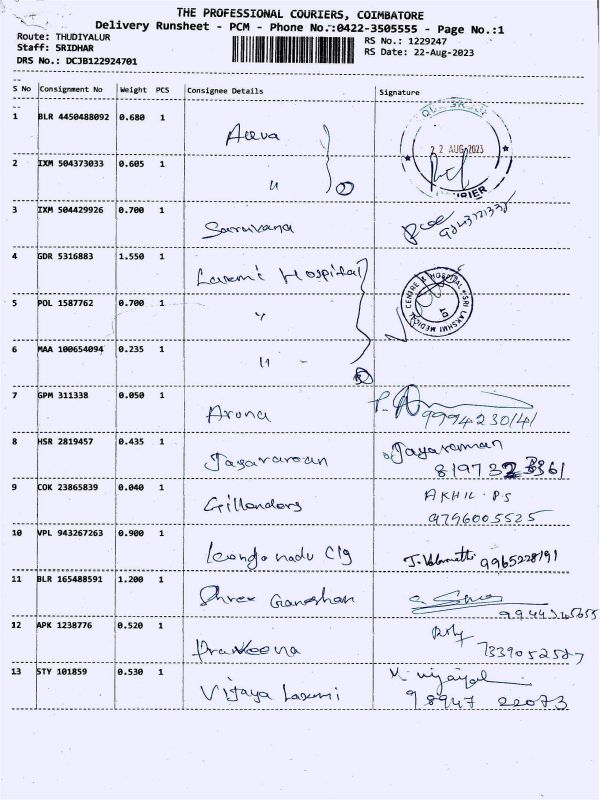 THE PROFESSIONAL COURIERS, COIMBATORE
Delivery Runsheet - PCM - Phone No.:0422-3505555 - Page No.:1
Route: THUDIYALUR
RS No.: 1229247
Staff: SRIDHAR
RS Date: 22-Aug-2023
DRS No.: DCJB122924701
S No Consignment No Weight PCS Consignee Details Signature
1 BLR 4450488092 0.680 1
22 AUG 2023
COURIER
2 IXM 504373033 0.605 1 "
3 IXM 504429926 0.700 1 Saravana
4 GDR 5316883 1.550 1 Laxmi Hospital
SRI LAKSHMI MEDICAL CENTRE & HOSPITAL
5 POL 1587762 0.700 1 "
6 MAA 100654094 0.235 1 "
7 GPM 311338 0.050 1 Aruna 9994230141
8 HSR 2819457 0.435 1 Jayararaan Jayaraman
9 COK 23865839 0.040 1 Gillanders AKHIL.P.S
9746005525
10 VPL 943267263 0.900 1 Kongonadu Clg 9965228191
11 BLR 165488591 1.200 1 Shree Ganeshan
12 APK 1238776 0.520 1 Praveena 7339052587
13 STY 101859 0.530 1 Vijaya Laxmi
98947 22073